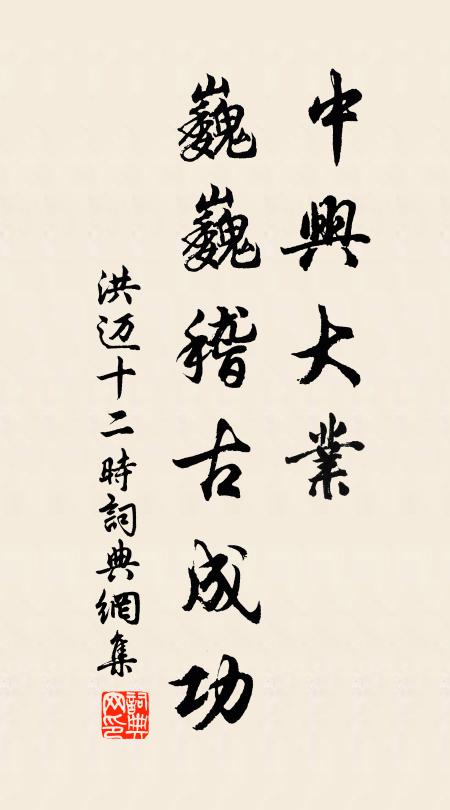 中興大業
巍巍稽古成功
洪迈十二時詞典網集
詞典网印